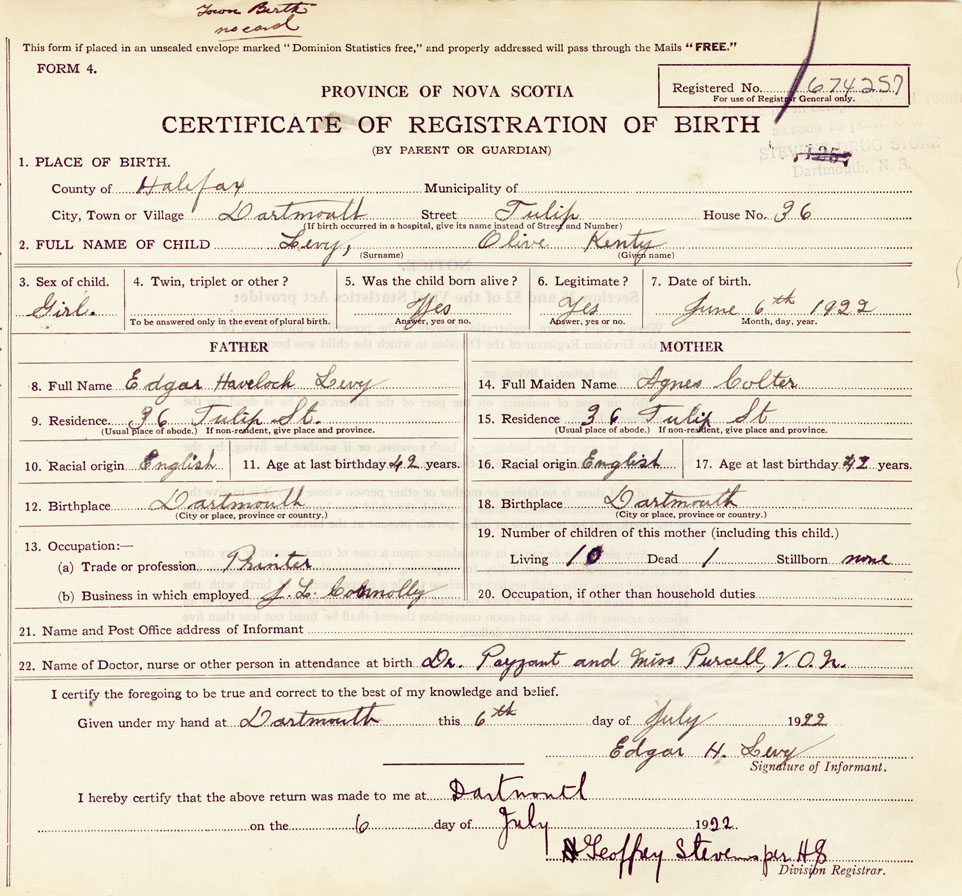 Town Birth
no card
This form if placed in an unsealed envelope marked "Dominion Statistics free," and properly addressed will pass through the Mails "FREE."
FORM 4.
Registered No. 674257
For use of Registrar General only.
PROVINCE OF NOVA SCOTIA
CERTIFICATE OF REGISTRATION OF BIRTH
(BY PARENT OR GUARDIAN)
as soon as
STEVENS DRUG STORE
Dartmouth, N. S.
1. PLACE OF BIRTH.
County of Halifax Municipality of
City, Town or Village Dartmouth Street Tulip House No. 36
(If birth occurred in a hospital, give its name instead of Street and Number)
2. FULL NAME OF CHILD Levy, Olive Kenty
(Surname) (Given name)
3. Sex of child. 4. Twin, triplet or other? 5. Was the child born alive? 6. Legitimate? 7. Date of birth.
Girl. Yes Yes June 6th 1922
To be answered only in the event of plural birth. Answer, yes or no. Answer, yes or no. Month, day, year.
FATHER MOTHER
8. Full Name Edgar Havelock Levy 14. Full Maiden Name Agnes Colter
9. Residence. 36 Tulip St. 15. Residence 36 Tulip St
(Usual place of abode.) If non-resident, give place and province. (Usual place of abode.) If non-resident, give place and province.
10. Racial origin English 11. Age at last birthday 42 years. 16. Racial origin English 17. Age at last birthday 42 years.
12. Birthplace Dartmouth 18. Birthplace Dartmouth
(City or place, province or country.) (City or place, province or country.)
13. Occupation:— 19. Number of children of this mother (including this child.)
(a) Trade or profession Printer Living 10 Dead 1 Stillborn none
(b) Business in which employed J. L. Connolly 20. Occupation, if other than household duties
21. Name and Post Office address of Informant
22. Name of Doctor, nurse or other person in attendance at birth Dr. Payzant and Miss Purcell, V.O.N.
I certify the foregoing to be true and correct to the best of my knowledge and belief.
Given under my hand at Dartmouth this 6th day of July 1922
Edgar H. Levy
Signature of Informant.
I hereby certify that the above return was made to me at Dartmouth
on the 6 day of July 1922.
Geoffrey Stevens per HS
Division Registrar.